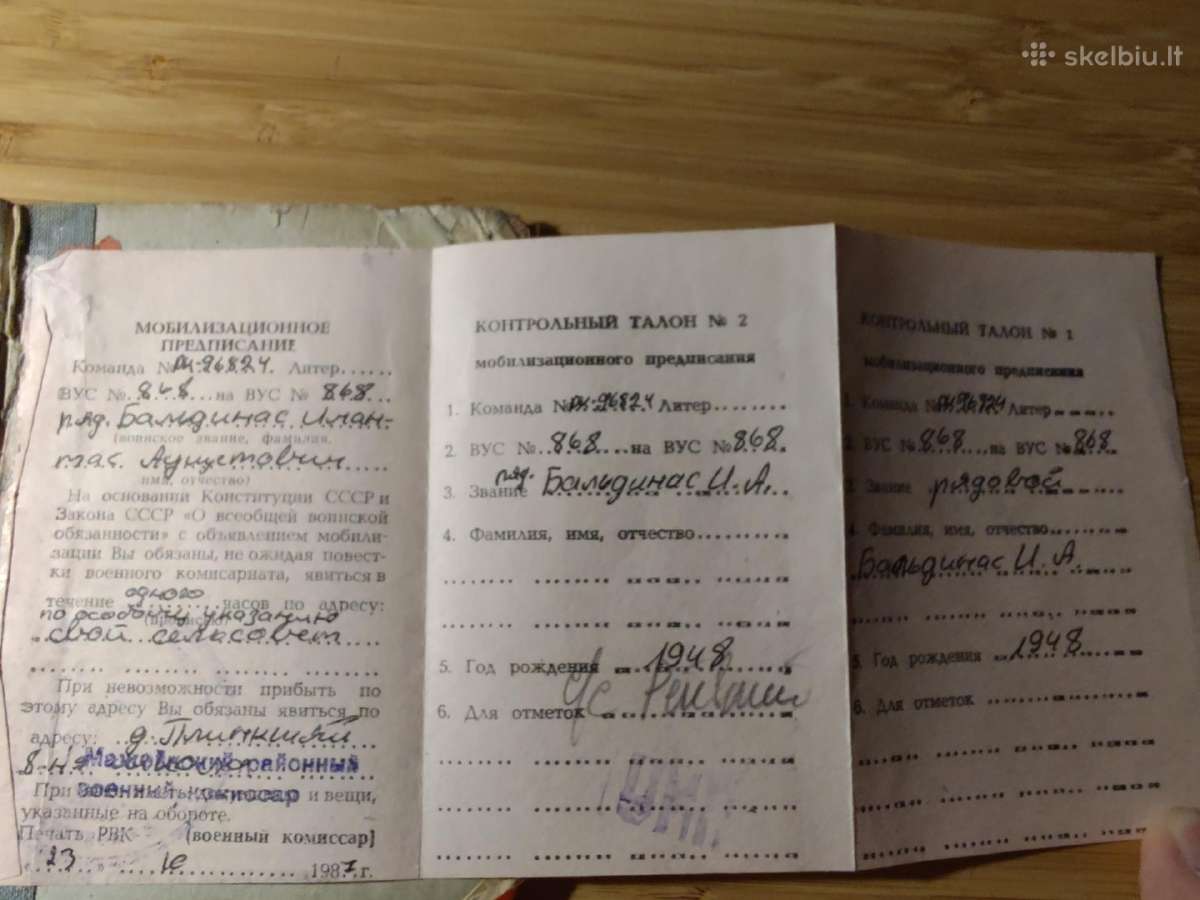 skelbiu.lt
МОБИЛИЗАЦИОННОЕ
ПРЕДПИСАНИЕ
Команда № РН-96824. Литер......
ВУС № 848 на ВУС № 868
ряд. Бальдинас Иман-
(воинское звание, фамилия,
тас Аугустович
имя, отчество)
На основании Конституции СССР и
Закона СССР «О всеобщей воинской
обязанности» с объявлением мобили-
зации Вы обязаны, не ожидая повест-
ки военного комисариата, явиться в
течение одного часов по адресу:
(прописью)
по особому указанию
свой сельсовет
При невозможности прибыть по
этому адресу Вы обязаны явиться по
адресу: д. Плинкшяй
Мажейкский районный
военный комиссар
При и вещи,
указанные на обороте.
Печать РВК (военный комиссар)
«23» 10 1987 г.
КОНТРОЛЬНЫЙ ТАЛОН № 2
мобилизационного предписания
1. Команда № РН-96824 Литер........
2. ВУС № 868 на ВУС № 868.
3. Звание ряд. Бальдинас И. А.
4. Фамилия, имя, отчество..........
5. Год рождения 1948
6. Для отметок
КОНТРОЛЬНЫЙ ТАЛОН № 1
мобилизационного предписания
1. Команда № РН-96824 Литер
2. ВУС № 868 на ВУС № 868
3. Звание рядовой
4. Фамилия, имя, отчество
Бальдинас И. А.
5. Год рождения 1948
6. Для отметок